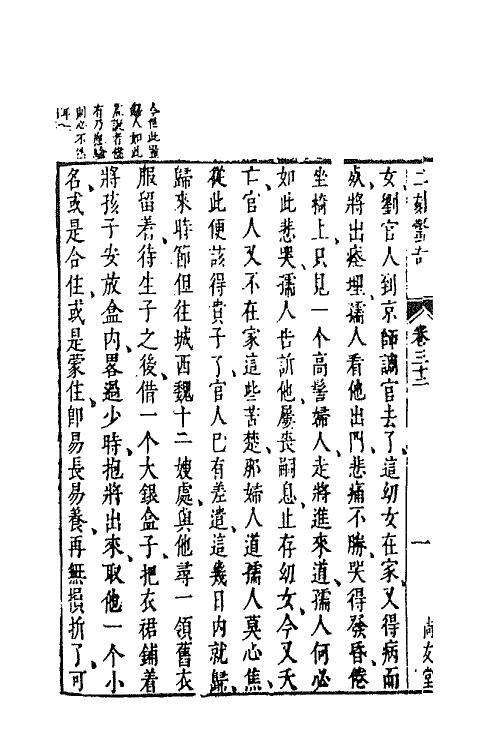 二刻驚奇
卷三十二
一
尚友堂
女劉官人到京師調官去了這幼女在家又得病而
殀將出瘞埋孺人看他出門悲痛不勝哭得發昏倦
坐椅上只見一个高髻婦人走將進來道孺人何必
如此悲哭孺人告訴他屢喪嗣息止存幼女今又夭
亡官人又不在家這些苦楚那婦人道孺人莫心焦
從此便該得貴子了官人已有差遣這幾日內就歸
歸來時節但往城西魏十二嫂處與他尋一領舊衣
服留着待生子之後借一个大銀盒子把衣裙鋪着
將孩子安放盒內畧過少時抱將出來取他一个小
名或是合住或是蒙住即易長易養再無損折了可
婦人如此